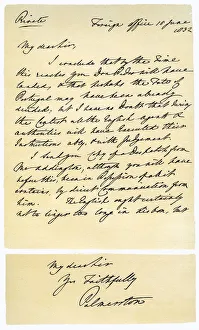 Private
Foreign Office 18 June
1832
My dear Sir,
I conclude that by the Time
this reaches you Don Pedro will have
landed, & that perhaps the Fate of
Portugal may have been already
decided, but I have no Doubt that
the English agents &
authorities will have executed their
Instructions ably, & with Judgement.
I send you Copy of a Despatch from
Mr Addington, although you will have
before this, been in Possession of all it
contains, by direct Communication from
him. The English ought certainly
not to linger too long in Lisbon, but
My dear Sir
Yrs Faithfully
Palmerston